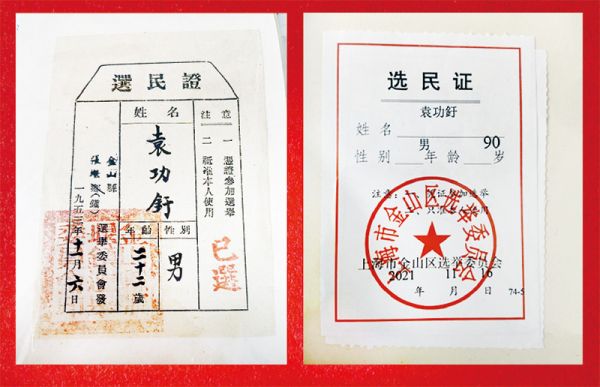 選民證
姓名
袁功釪
性別
男
年齡
二十二歲
注意
一 憑證參加選舉
二 祇准本人使用
已選
金山縣
張堰鎮
選舉委員會發
一九五三年十一月六日
选民证
袁功釪
姓名
男 90
性别 年龄 岁
注意
只准
上海市金山区选举委员会
上海市金山区选举委员会
2021 11 16
年 月 日
74-5